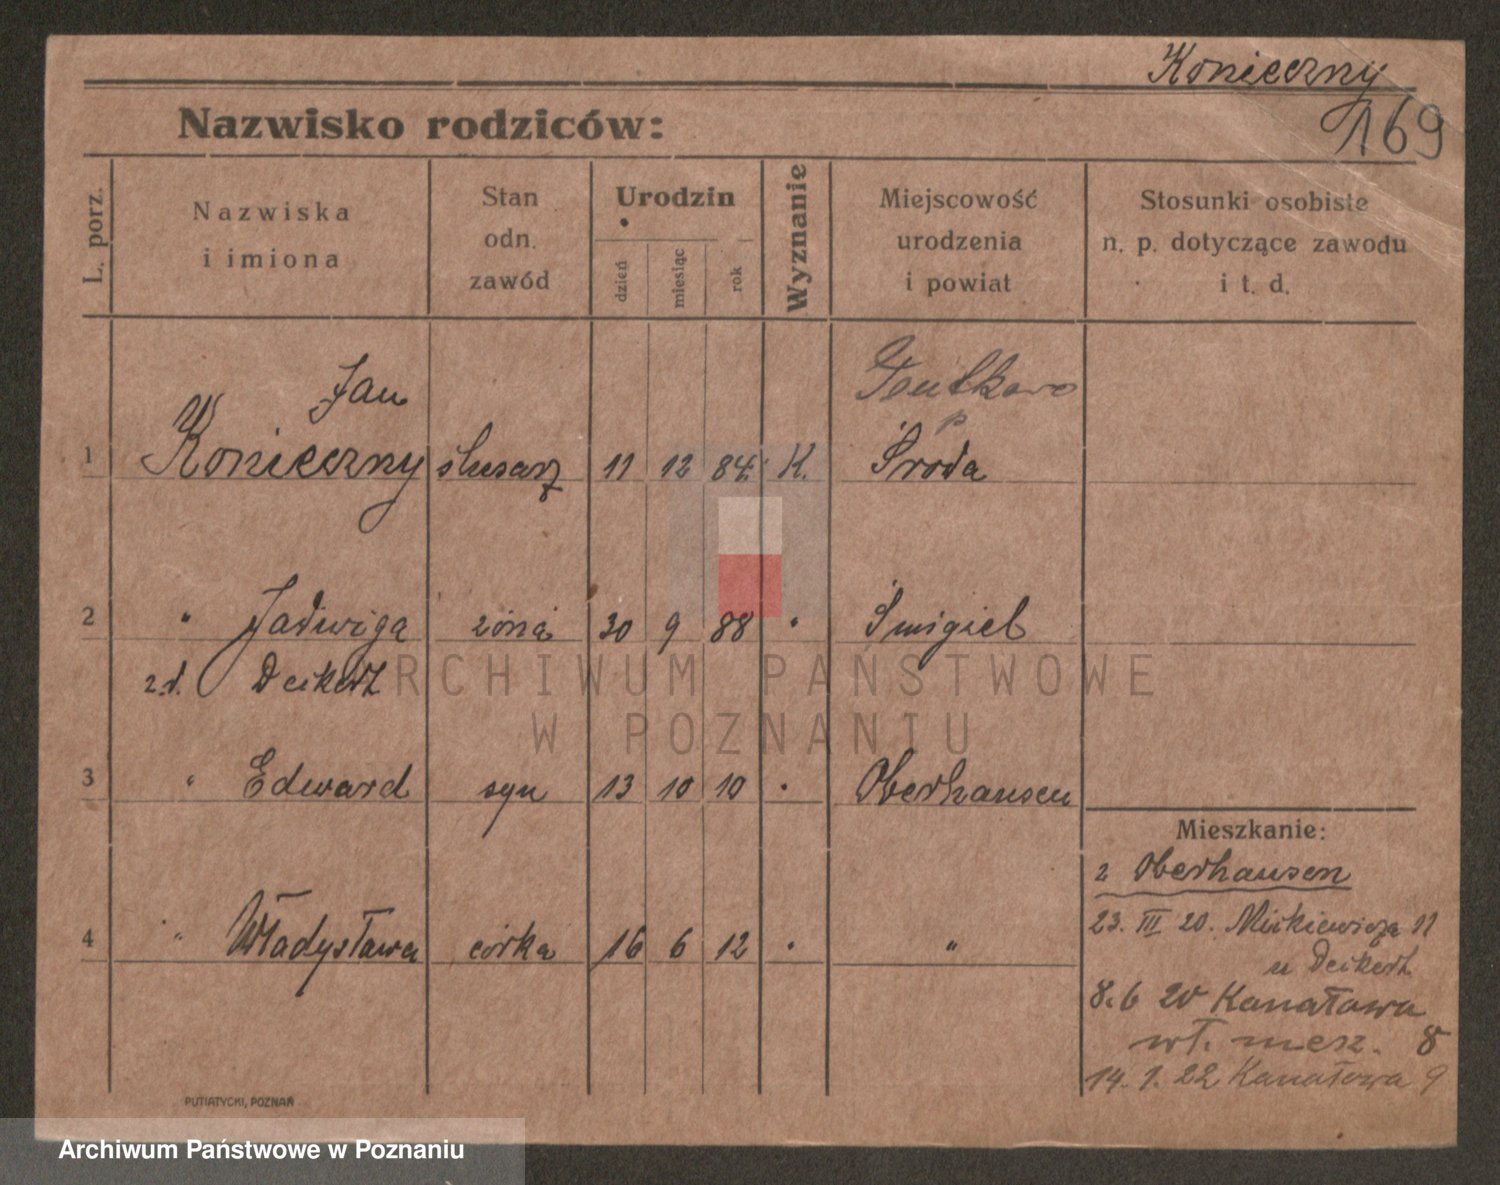 Konieczny
169
Nazwisko rodziców:
L. porz.
Nazwiska
i imiona
Stan
odn.
zawód
Urodzin
dzień
miesiąc
rok
Wyznanie
Miejscowość
urodzenia
i powiat
Stosunki osobiste
n. p. dotyczące zawodu
i t. d.
Jan
p
1 Konieczny ślusarz 11 12 84. K. Środa
2 " Jadwiga żona 30 9 88 " Śmigiel
z d. Deikert
3 " Edward syn 13 10 10 " Oberhausen
4 " Władysława córka 16 6 12 " "
Mieszkanie:
z Oberhausen
23. III 20. Mickiewicza 11
u Deikert
8.6 20 Kanałowa
wł. miesz. 8
14. 1. 22 Kanałowa 9
PUTIATYCKI, POZNAŃ
ARCHIWUM PAŃSTWOWE
W POZNANIU
Archiwum Państwowe w Poznaniu